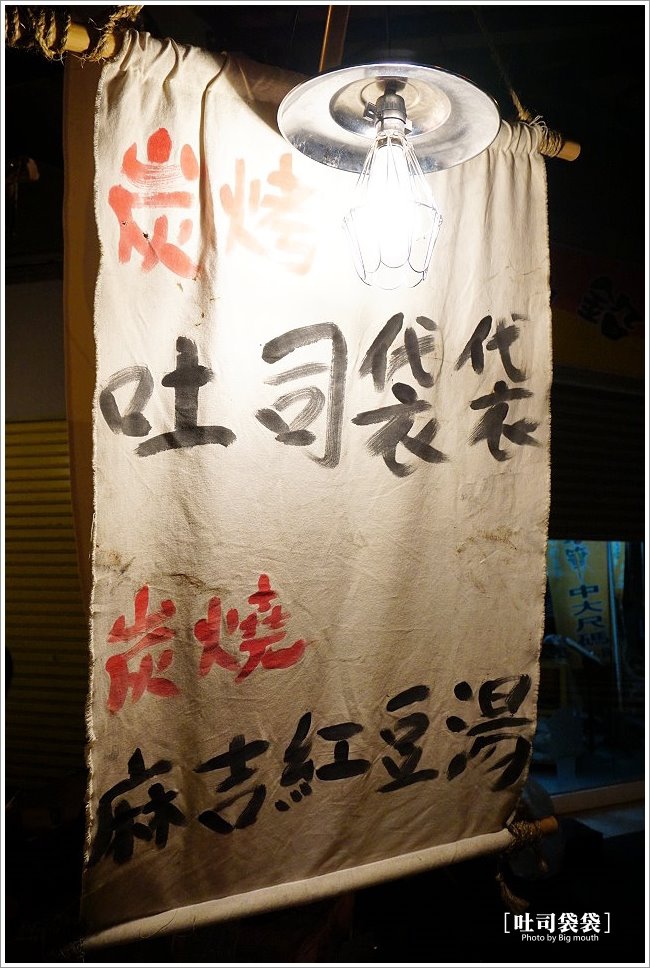 炭烤
吐司袋袋
炭燒
麻吉紅豆湯
中大尺碼
[吐司袋袋]
Photo by Big mouth